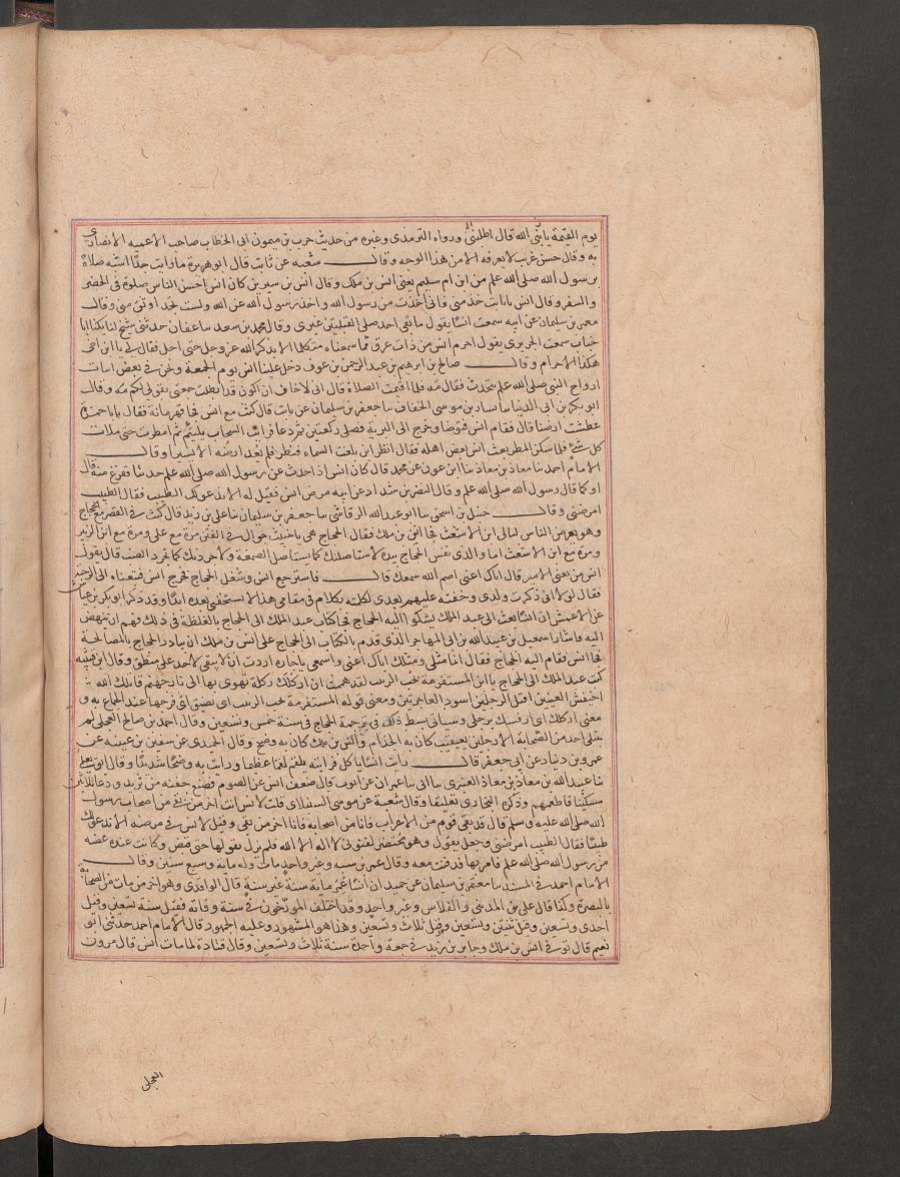 يوم القيمة يا نبي الله قال اطلبني ورواه الترمذي وغيره من حديث حرب بن ميمون ابي الخطاب صاحب الاعميه الانصاري
به وقال حسن غريب لا يعرفه الا من هذا الوجه وقال شعبه عن ثابت قال ابو هريرة ما رايت احدا اشبه صلاة
برسول الله صلى الله علم من ابن ام سليم يعني انس بن ملك وقال انس بن سيرين كان انس احسن الناس صلوة في الحضر
والسفر وقال انس يا ثابت خذ مني فاني اخذت من رسول الله واخذ رسول الله عن الله ولست تجد اوثق مني وقال
معمر بن سليمان عن ابيه سمعت انسا يقول ما بقي احد صلى القبلتين غيري وقال محمد بن سعد ساعفان حدثني شيخ لنا يكنا ابا
خباب سمعت الجريري يقول احرم انس من ذات عرق فما سمعناه متكلما الا بذكر الله عز وجل حتى احل فقال لي يا ابن اخي
هكذا الاحرام وقال صالح بن ابرهيم بن عبد الرحمن بن عوف دخل علينا انس يوم الجمعة ونحن في بعض ابيات
ازواج النبي صلى الله علم نتحدث فقال مه فلما اقيمت الصلاة قال اني لاخاف ان اكون قد ابطلت جمعتي بقولي لكم مه وقال
ابو بكر بن ابي الدنيا سا بشار بن موسى الخفاف سا جعفر بن سليمان عن ثابت قال كنت مع انس فجا قهرمانه فقال يابا حمزة
عطشت ارضنا قال فقام انس فتوضا وخرج الى البرية فصلى ركعتين ثم دعا فرايت السحاب يلتئم ثم امطرت حتى ملات
كل شئ فلما سكن المطر بعث انس بعض اهله فقال انظر اين بلغت السماء فنظر فلم تعد ارضه الا يسيرا وقال
الامام احمد سا معاذ بن معاذ سا ابن عون عن محمد قال كان انس اذا حدث عن رسول الله صلى الله علم حديثا ففرغ منه قال
او كما قال رسول الله صلى الله علم وقال النضر بن شداد عن ابيه مرض انس فقيل له الا ندعو لك الطبيب فقال الطبيب
امرضني وقال حنبل بن اسحق سا ابو عبد الله الرقاشي سا جعفر بن سليمان سا علي بن زيد قال كنت في القصر مع الحجاج
وهو يعرض الناس ليالي ابن الاشعث فجا انس بن ملك فقال الحجاج هي يا خبيث جوال في الفتن مرة مع علي ومرة مع ابن الزبير
ومرة مع ابن الاشعث اما والذي نفس الحجاج بيده لاستاصلنك كما يستاصل الصمغة ولاجردنك كما يجرد الضب قال يقول
انس من يعني الامير قال اياك اعني اصم الله سمعك قال فاسترجع انس وشغل الحجاج فخرج انس فتبعناه الى الرحبة
فقال لولا اني ذكرت ولدي وخفته عليهم بعدي لكلمته بكلام في مقامي هذا لا يستحيني بعده ابدا وقد ذكر ابو بكر بن عياش
عن الاعمش ان انسا بعث الى عبد الملك يشكو اليه الحجاج فجا كتاب عبد الملك الى الحجاج بالغلظة في ذلك فهم ان ينهض
اليه فاشار اسمعيل بن عبيد الله بن ابي المهاجر الذي قدم بالكتاب الى الحجاج على انس بن ملك ان يبادر الحجاج بالمصالحة
فجا انس فقام اليه الحجاج فقال انما مثلي ومثلك اياك اعني واسمعي يا جاره اردت ان لا يبقى لاحد علي منطق وقال ابن قتيبه
كتب عبد الملك الى الحجاج يا ابن المستفرمة بحب الزبيب لقد هممت ان اركلك ركلة تهوي بها الى نار جهنم قاتلك الله
اخيفش العينين اقتل الرجلين اسود العاجزتين ومعنى قوله المستفرمة بحب الزبيب اي تضيق به فرجها عند الجماع به و
معنى اركلك اي ارفسك برجلي وسياتي بسط ذلك في ترجمة الحجاج في سنة خمس وتسعين وقال احمد بن صالح العجلي لم
يبتلى احد من الصحابة الا رجلين معيقيب كان به الجذام وانس بن ملك كان به وضح وقال الحميدي عن سفين بن عيينه عن
عمرو بن دينار عن ابي جعفر قال رايت انسا ياكل فرايته يلقم لقما عظيما ورايت به وضحا شديدا وقال ابو يعلى
سا عبد الله بن معاذ بن معاذ العنبري سا ابي سا عمران عن ايوب قال ضعف انس عن الصوم فصنع جفنه من ثريد ودعا ثلاثين
مسكينا فاطعمهم وذكره البخاري تعليقا وقال شعبة عن موسى السنبلاي قلت لانس انت اخر من بقي من اصحاب رسول
الله صلى الله عليه وسلم قال قد بقي قوم من الاعراب فاما من اصحابه فانا اخر من بقي وقيل لانس في مرضه الا ندعو لك
طبيبا فقال الطبيب امرضني وجعل يقول وهو محتضر لقنوني لا اله الا الله فلم يزل يقولها حتى قبض وكانت عنده عصية
من رسول الله صلى الله علم فامر بها فدفنت معه وقال عمر بن شبه وغير واحد مات وله مايه وسبع سنين وقال
الامام احمد في المسند سا معتمر بن سليمان عن حميد ان انسا عمر ماية سنة غير سنة قال الواقدي وهو اخر من مات من الصحابة
بالبصرة وكذا قال علي بن المديني والفلاس وغير واحد وقد اختلف المورخون في سنة وفاته فقيل سنة تسعين وقيل
احدى وتسعين وقيل ثنتين وتسعين وقيل ثلاث وتسعين وهذا هو المشهور وعليه الجمهور قال الامام احمد حدثني ابو
نعيم قال توفي انس بن ملك وجابر بن زيد في جمعة واحدة سنة ثلاث وتسعين وقال قتادة لما مات انس قال مورق
العجلي